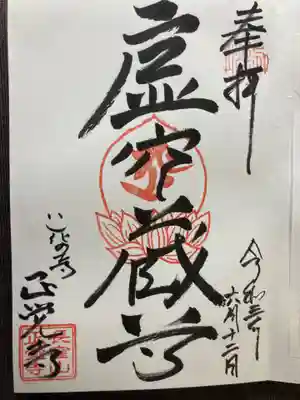 奉拝
令和三年
六月十二日
虚空蔵尊
正覚寺